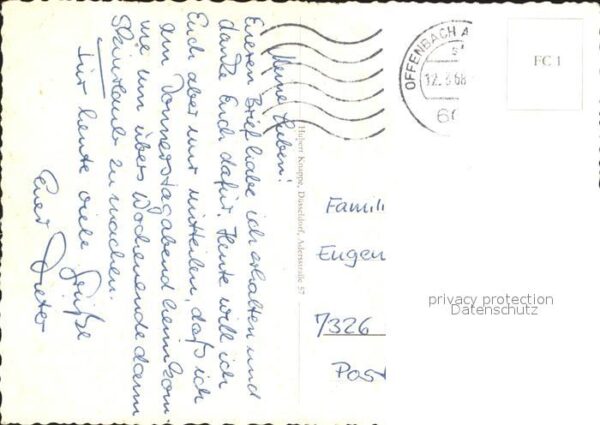 Meine Lieben!
Eueren Brief habe ich erhalten und
danke Euch dafür. Heute will ich
Euch aber nur mitteilen, daß ich
am Donnerstagabend heimkom-
me um übers Wochenende dann
Skiurlaub zu machen.
Für heute viele Grüße
Euer Dieter
Hubert Knappe, Düsseldorf, Adersstraße 57
OFFENBACH A
12. 3.68
60
FC 1
Famili
Eugen
7326
Post
privacy protection
Datenschutz